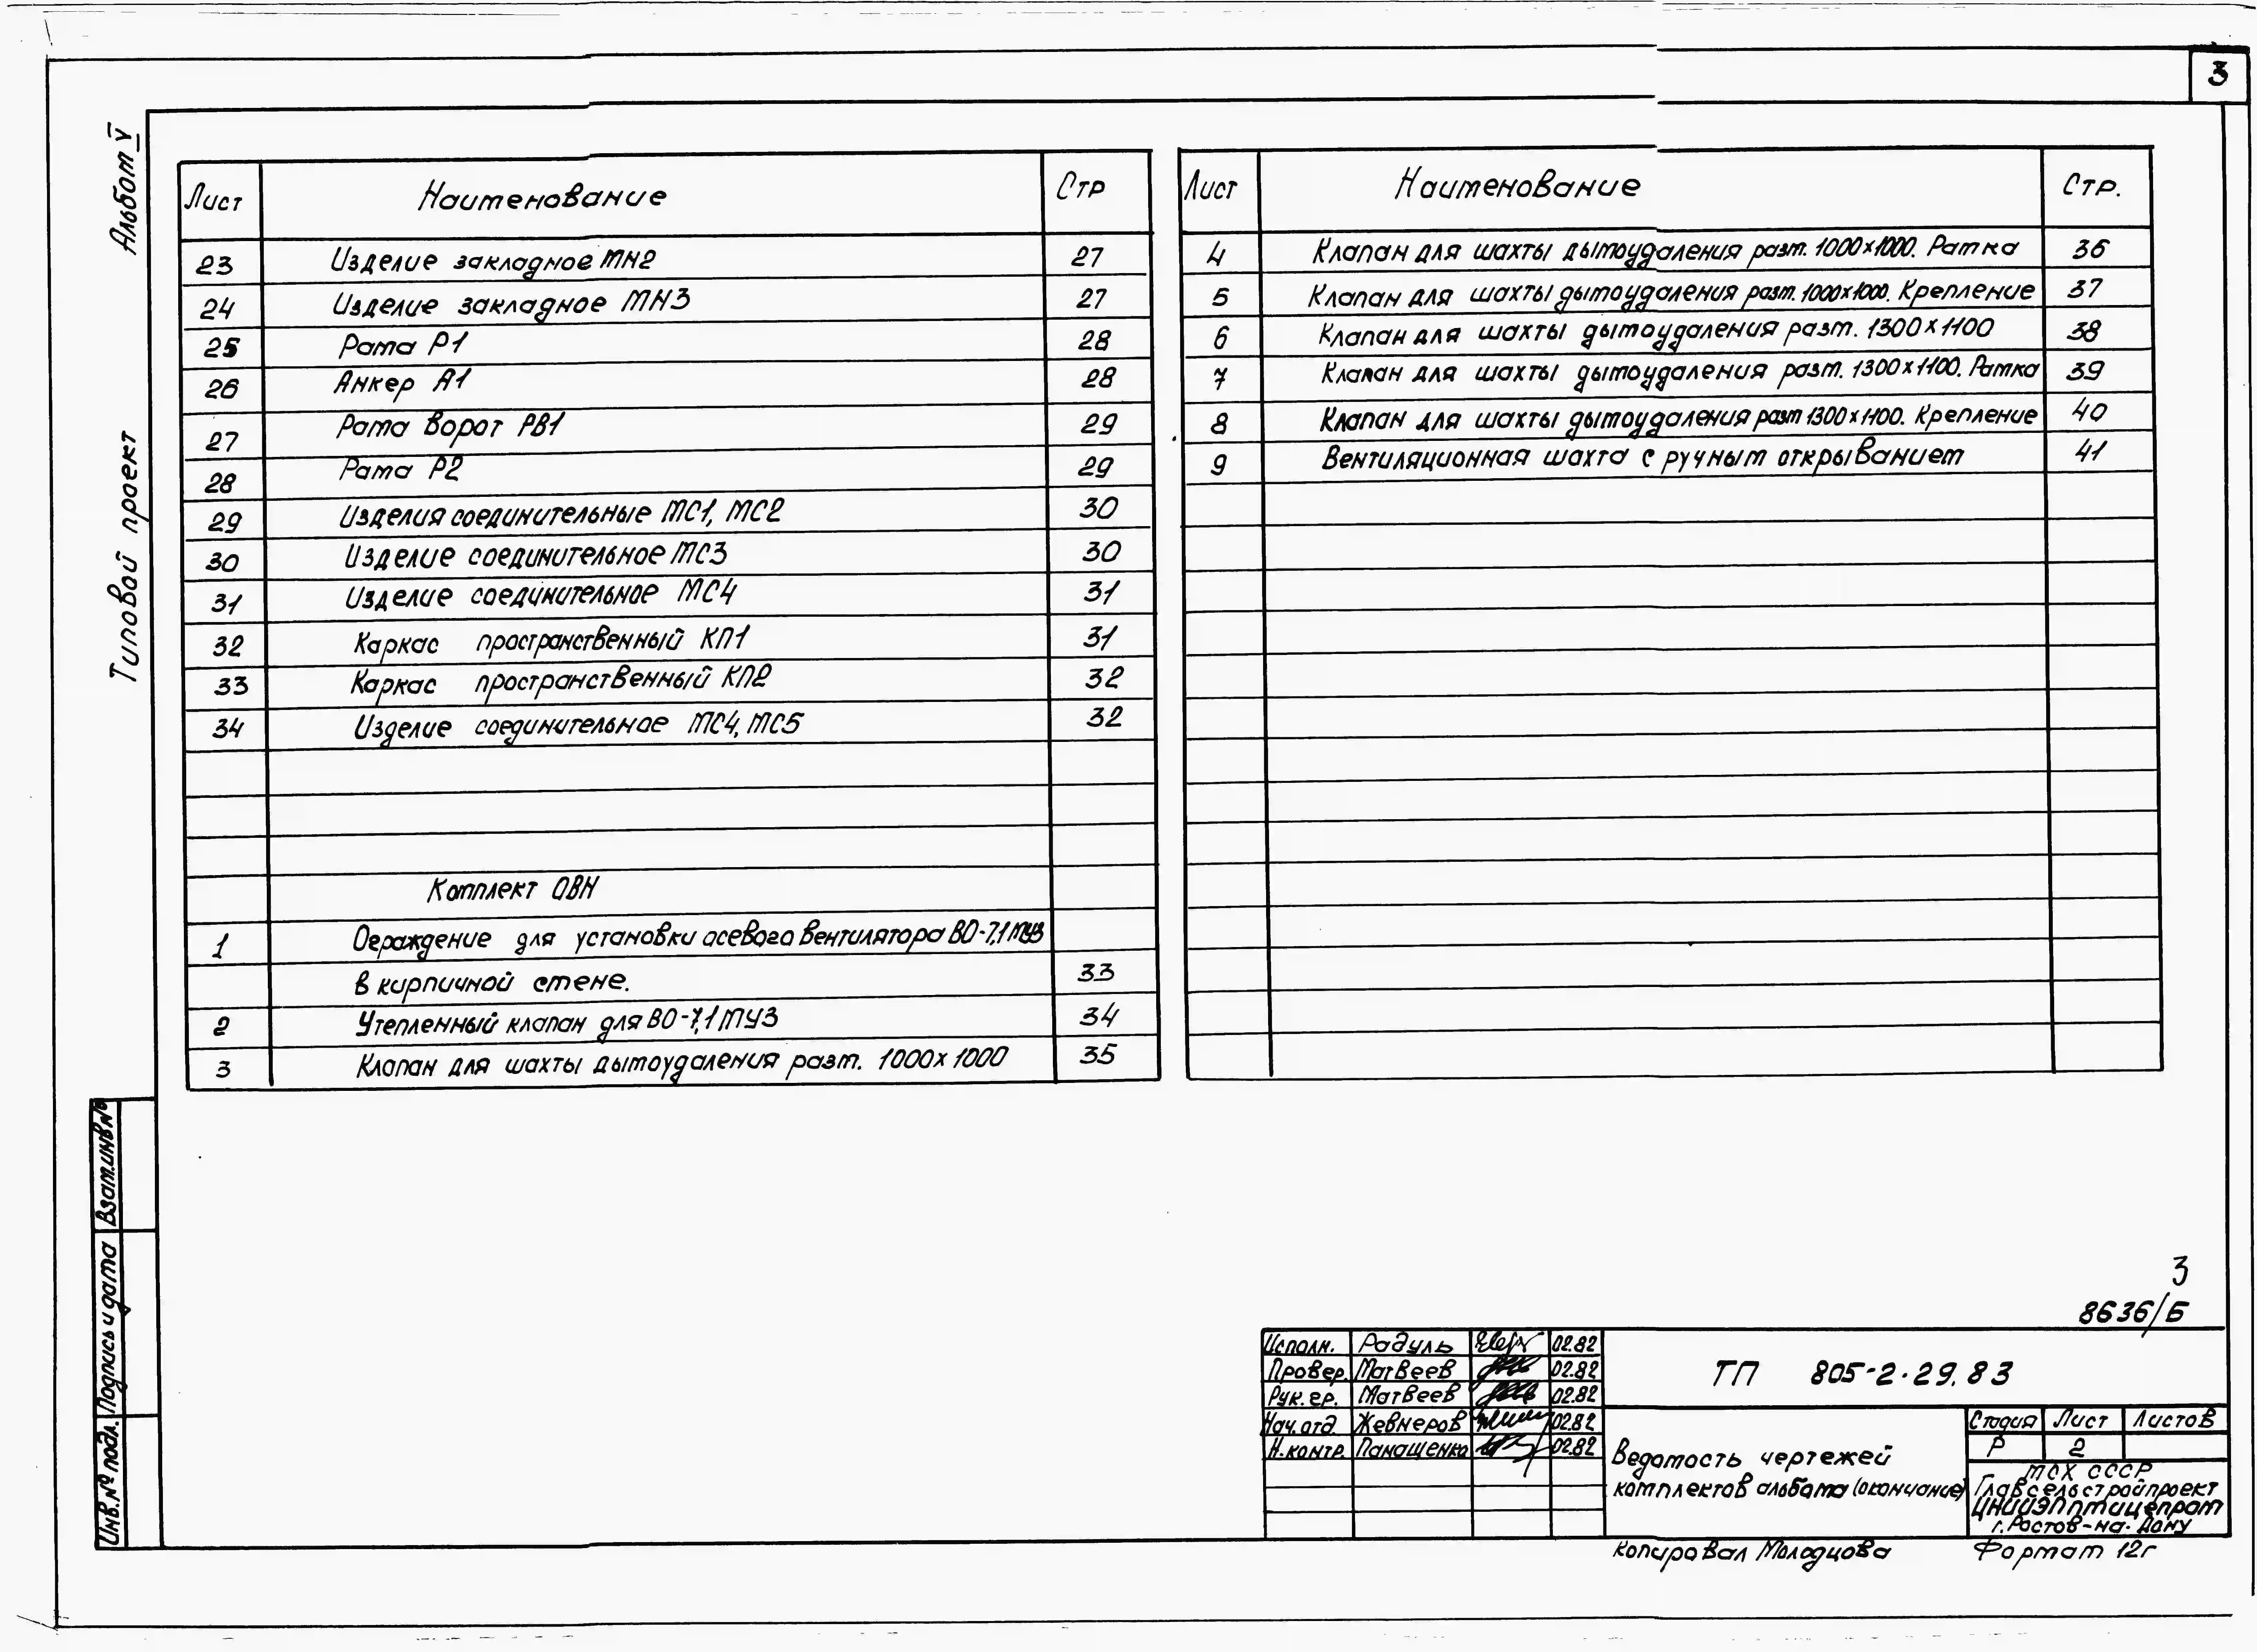 3
Альбом V
Типовой проект
Лист Наименование Стр
23 Изделие закладное МН2 27
24 Изделие закладное МН3 27
25 Рама Р1 28
26 Анкер А1 28
27 Рама ворот РВ1 29
28 Рама Р2 29
29 Изделия соединительные МС1, МС2 30
30 Изделие соединительное МС3 30
31 Изделие соединительное МС4 31
32 Каркас пространственный КП1 31
33 Каркас пространственный КП2 32
34 Изделие соединительное МС4, МС5 32
Комплект ОВН
1 Ограждение для установки осевого вентилятора ВО-7,1 МУ3
в кирпичной стене. 33
2 Утепленный клапан для ВО-7,1 МУ3 34
3 Клапан для шахты дымоудаления разм. 1000х1000 35
Лист Наименование Стр.
4 Клапан для шахты дымоудаления разм. 1000х1000. Рамка 36
5 Клапан для шахты дымоудаления разм. 1000х1000. Крепление 37
6 Клапан для шахты дымоудаления разм. 1300х1100 38
7 Клапан для шахты дымоудаления разм. 1300х1100. Рамка 39
8 Клапан для шахты дымоудаления разм 1300х1100. Крепление 40
9 Вентиляционная шахта с ручным открыванием 41
Взам.инв№
Подпись и дата
Инв.№ подл.
3
8636/Б
Исполн. Радуль 02.82
Провер. Матвеев 02.82
Рук. гр. Матвеев 02.82
Нач. отд. Жевнеров 02.82
Н.контр. Панащенко 02.82
ТП 805-2.29.83
Ведомость чертежей
комплектов альбома (окончание)
Стадия Лист Листов
Р 2
МСХ СССР
Главсельстройпроект
ЦНИИЭПптицепром
г. Ростов-на-Дону
Копировал Молодцова
Формат 12г